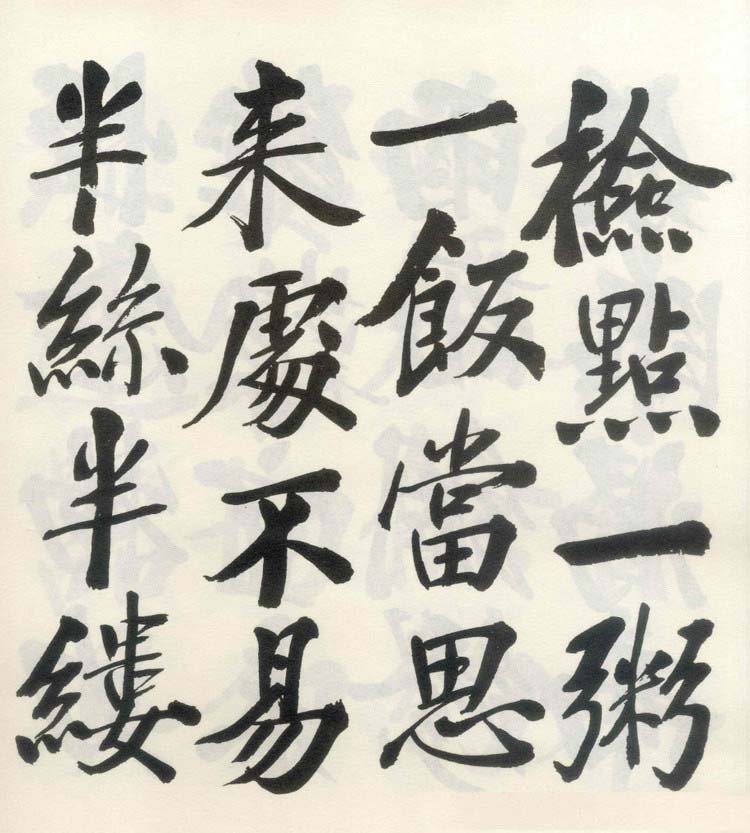 檢點一粥
一飯當思
来處不易
半絲半縷